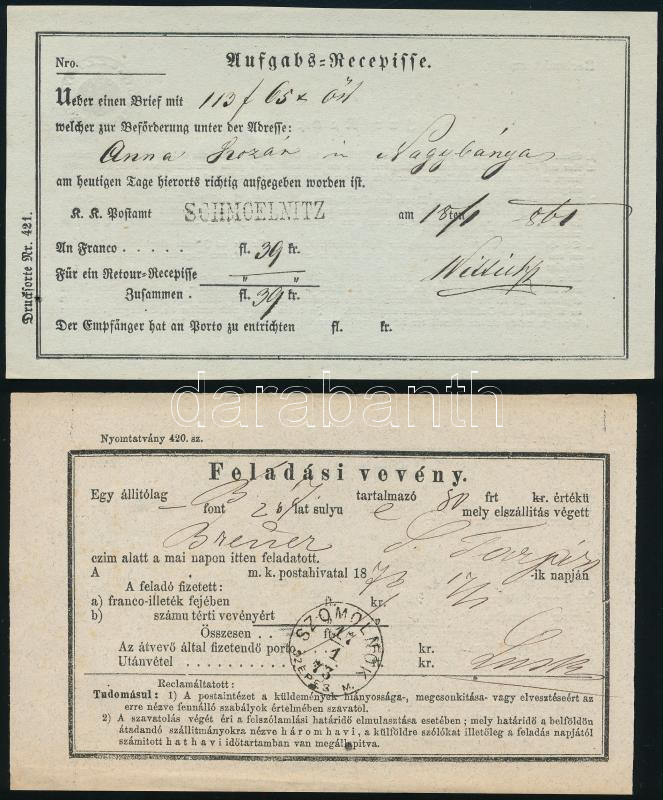 Aufgabs-Recepisse.
Nro.
Ueber einen Brief mit 113 f 65 x öst
welcher zur Beförderung unter der Adresse:
Anna in Nagybánya
am heutigen Tage hierorts richtig aufgegeben worden ist.
K. K. Postamt SCHMOELNITZ am 18ten 861
An Franco . . . . . fl. 39 kr.
Für ein Retour-Recepisse " "
Zusammen . fl. 39 kr.
Der Empfänger hat an Porto zu entrichten fl. kr.
Drucksorte Nr. 421.
darabanth
Nyomtatvány 420. sz.
Feladási vevény.
Egy állitólag tartalmazó 80 frt kr. értékü
font lat sulyu mely elszállitás végett
Breuer
czim alatt a mai napon itten feladatott.
A m. k. postahivatal 1873 17/1 -ik napján
A feladó fizetett: ft. kr.
a) franco-illeték fejében
b) számu térti vevényért
Összesen
Az átvevő által fizetendő porto kr.
Utánvétel kr.
SZOMOLNOK
17
1
73
SZEPES M.
Reclamáltatott:
Tudomásul: 1) A postaintézet a küldemények hiányossága-, megcsonkitása- vagy elvesztéseért az
erre nézve fennálló szabályok értelmében szavatol.
2) A szavatolás végét éri a felszólamlási határidő elmulasztása esetében; mely határidő a belföldön
átadandó szállitmányokra nézve háromhavi, a külföldre szólókat illetőleg a feladás napjától
számitott hathavi időtartamban van megállapitva.